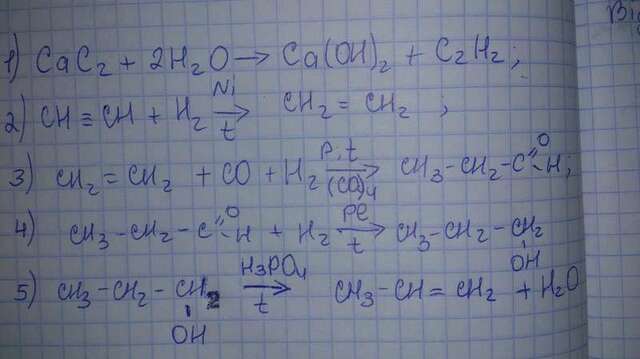 Ві
1) CaC₂ + 2H₂O → Ca(OH)₂ + C₂H₂;
2) CH ≡ CH + H₂ →(Ni, t) CH₂ = CH₂ ;
3) CH₂ = CH₂ + CO + H₂ →(P, t, (CO)₄) CH₃-CH₂-C(=O)-H;
4) CH₃-CH₂-C(=O)-H + H₂ →(Pt, t) CH₃-CH₂-CH₂-OH
5) CH₃-CH₂-CH₂-OH →(H₃PO₄, t) CH₃-CH=CH₂ + H₂O